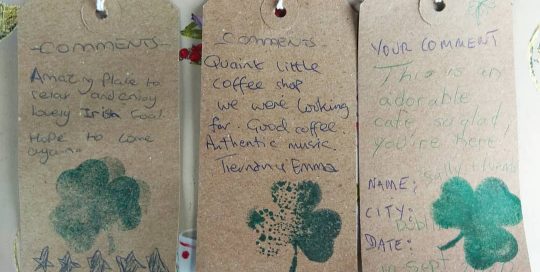 -COMMENTS-
Amazing Place to
relax and enjoy
lovely Irish food
Hope to come
again
COMMENTS-
Quaint little
coffee shop
we were looking
for. Good coffee.
Authentic music.
Tiernan & Emma
YOUR COMMENT
This is an
adorable
cafe so glad
you're here!
NAME: Sally
CITY: Dublin
DATE:
Sept